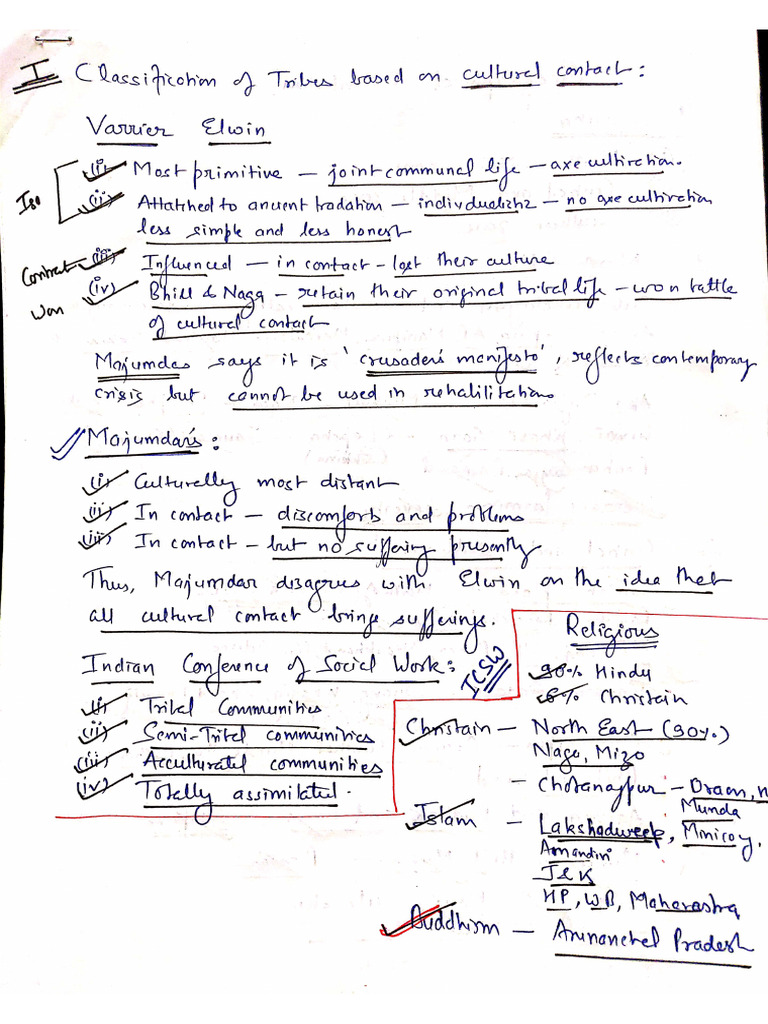 I Classification of Tribes based on cultural contact:
Varrier Elwin
Iso
(i) Most primitive — joint communal life — axe cultivation.
(ii) Attatched to ancient tradation — individualistic — no axe cultivation
less simple and less honest
Contact (iii) Influenced — in contact - lost their culture
Won (iv) Bhill & Naga - retain their original tribal life - won battle
of cultural contact
Majumdar says it is 'crusader's manifesto', reflects contemporary
crisis but cannot be used in rehabilitation.
Majumdar's:
(i) Culturally most distant
(ii) In contact — discomforts and problems
(iii) In contact - but no suffering presently
Thus, Majumdar disagrees with Elwin on the idea that
all cultural contact brings sufferings.
Indian Conference of Social Work:
ICSW
(i) Tribal Communities
(ii) Semi-Tribal communities
(iii) Acculturated communities
(iv) Totally assimilated.
Religious
90% Hindu
6% Christain
Christain — North East (90%)
Naga, Mizo
- Chotanagpur - Oraon,
Munda
Islam — Lakshadweep, Minicoy,
Amandivi
J&K
HP, WB, Maharastra
Buddhism — Arunanchel Pradesh